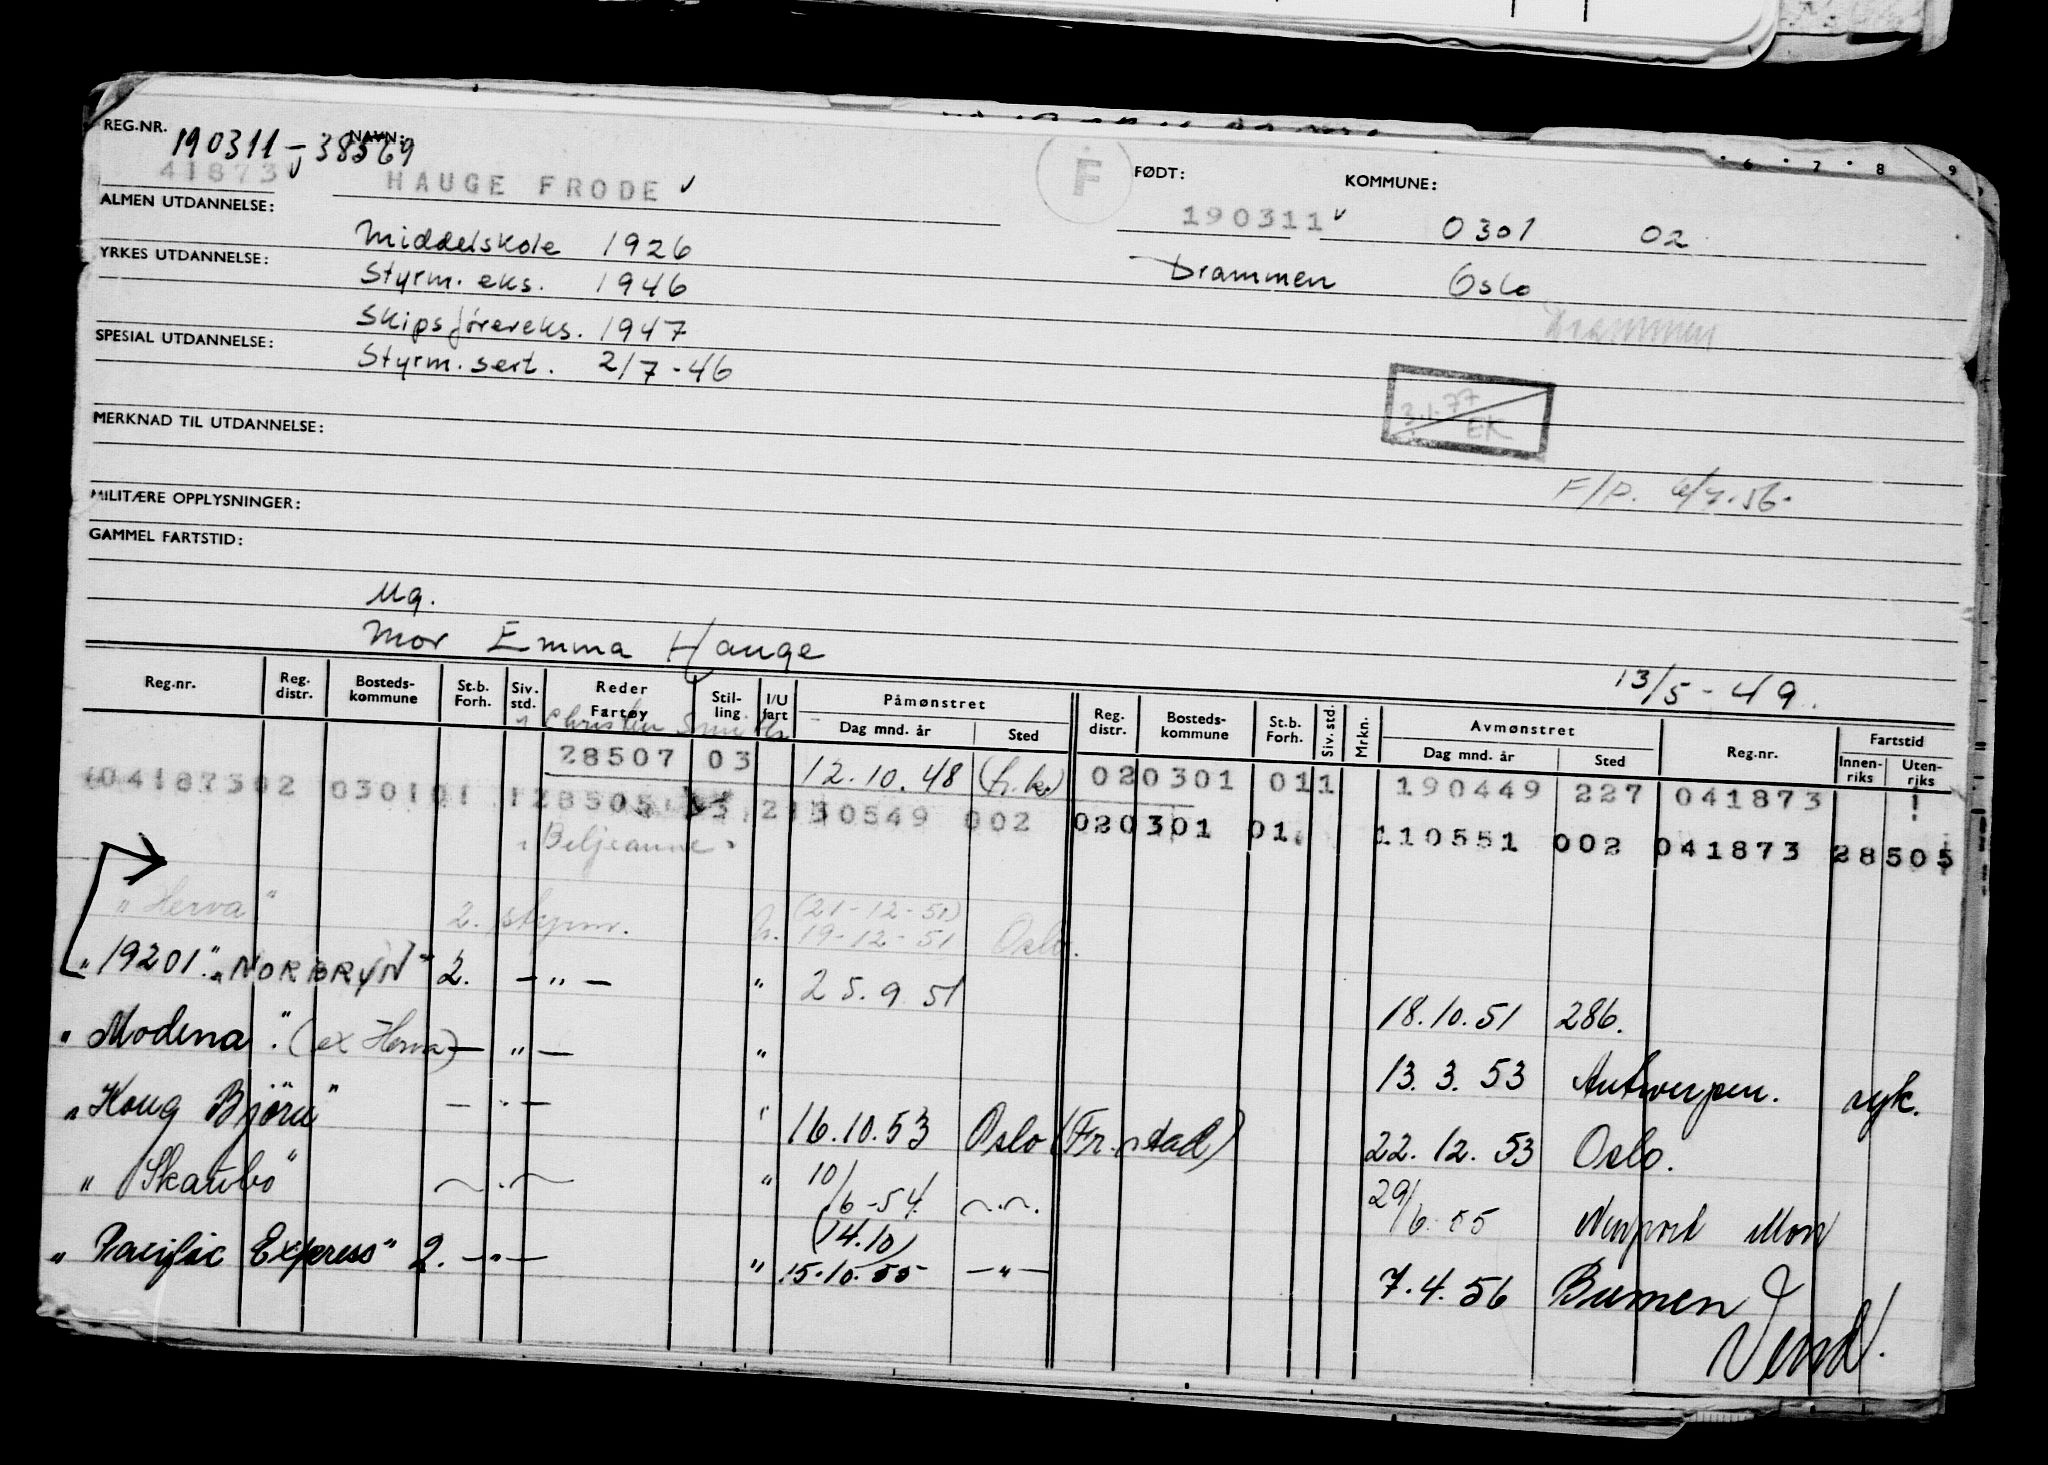 REG.NR. 190311-38569 NAVN:
41873 HAUGE FRODE F FØDT: KOMMUNE:
190311 0301 02
ALMEN UTDANNELSE: Middelskole 1926 Drammen Oslo
YRKES UTDANNELSE: Styrm. eks. 1946
Drammen
Skipsförereks. 1947
SPESIAL UTDANNELSE: Styrm. sert. 2/7-46
3.1.77 EK
MERKNAD TIL UTDANNELSE:
F/P. 6/7.56.
MILITÆRE OPPLYSNINGER:
GAMMEL FARTSTID:
Ug.
Mor Emma Hauge
13/5-49.
Reg.nr. Reg. distr. Bosteds- kommune St.b. Forh. Siv. std. Reder Fartøy Stil- ling I/U fart Påmønstret Dag mnd. år Sted Reg. distr. Bosteds- kommune St.b. Forh. Siv. std. Mrkn. Avmønstret Dag mnd. år Sted Reg.nr. Fartstid Innen- riks Uten- riks
"Christen Smith"
28507 03 12.10.48 (h.k.) 020301 011 190449 227 041873
04187302 030101 128505 130549 002 020301 01 110551 002 041873 28505
"Beljeanne"
"Herva" 2. styrm. (21-12-51) 19-12-51 Oslo.
"19201." "NORBRYN" 2. — " — " 25.9.51 18.10.51 286.
"Modena". (ex Herva) — " — " 13.3.53 Antwerpen.
"Kong Björn" — " — " 16.10.53 Oslo (Fr.stad) 22.12.53 Oslo.
"Skaubo" — " — " 10/6-54 — " — 29/6-55 Newport Mon
"Pacific Express" 2. — " — " (14.10) 15.10.55 — " — 7.4.56 Bremen
Vend!
6 7 8 9